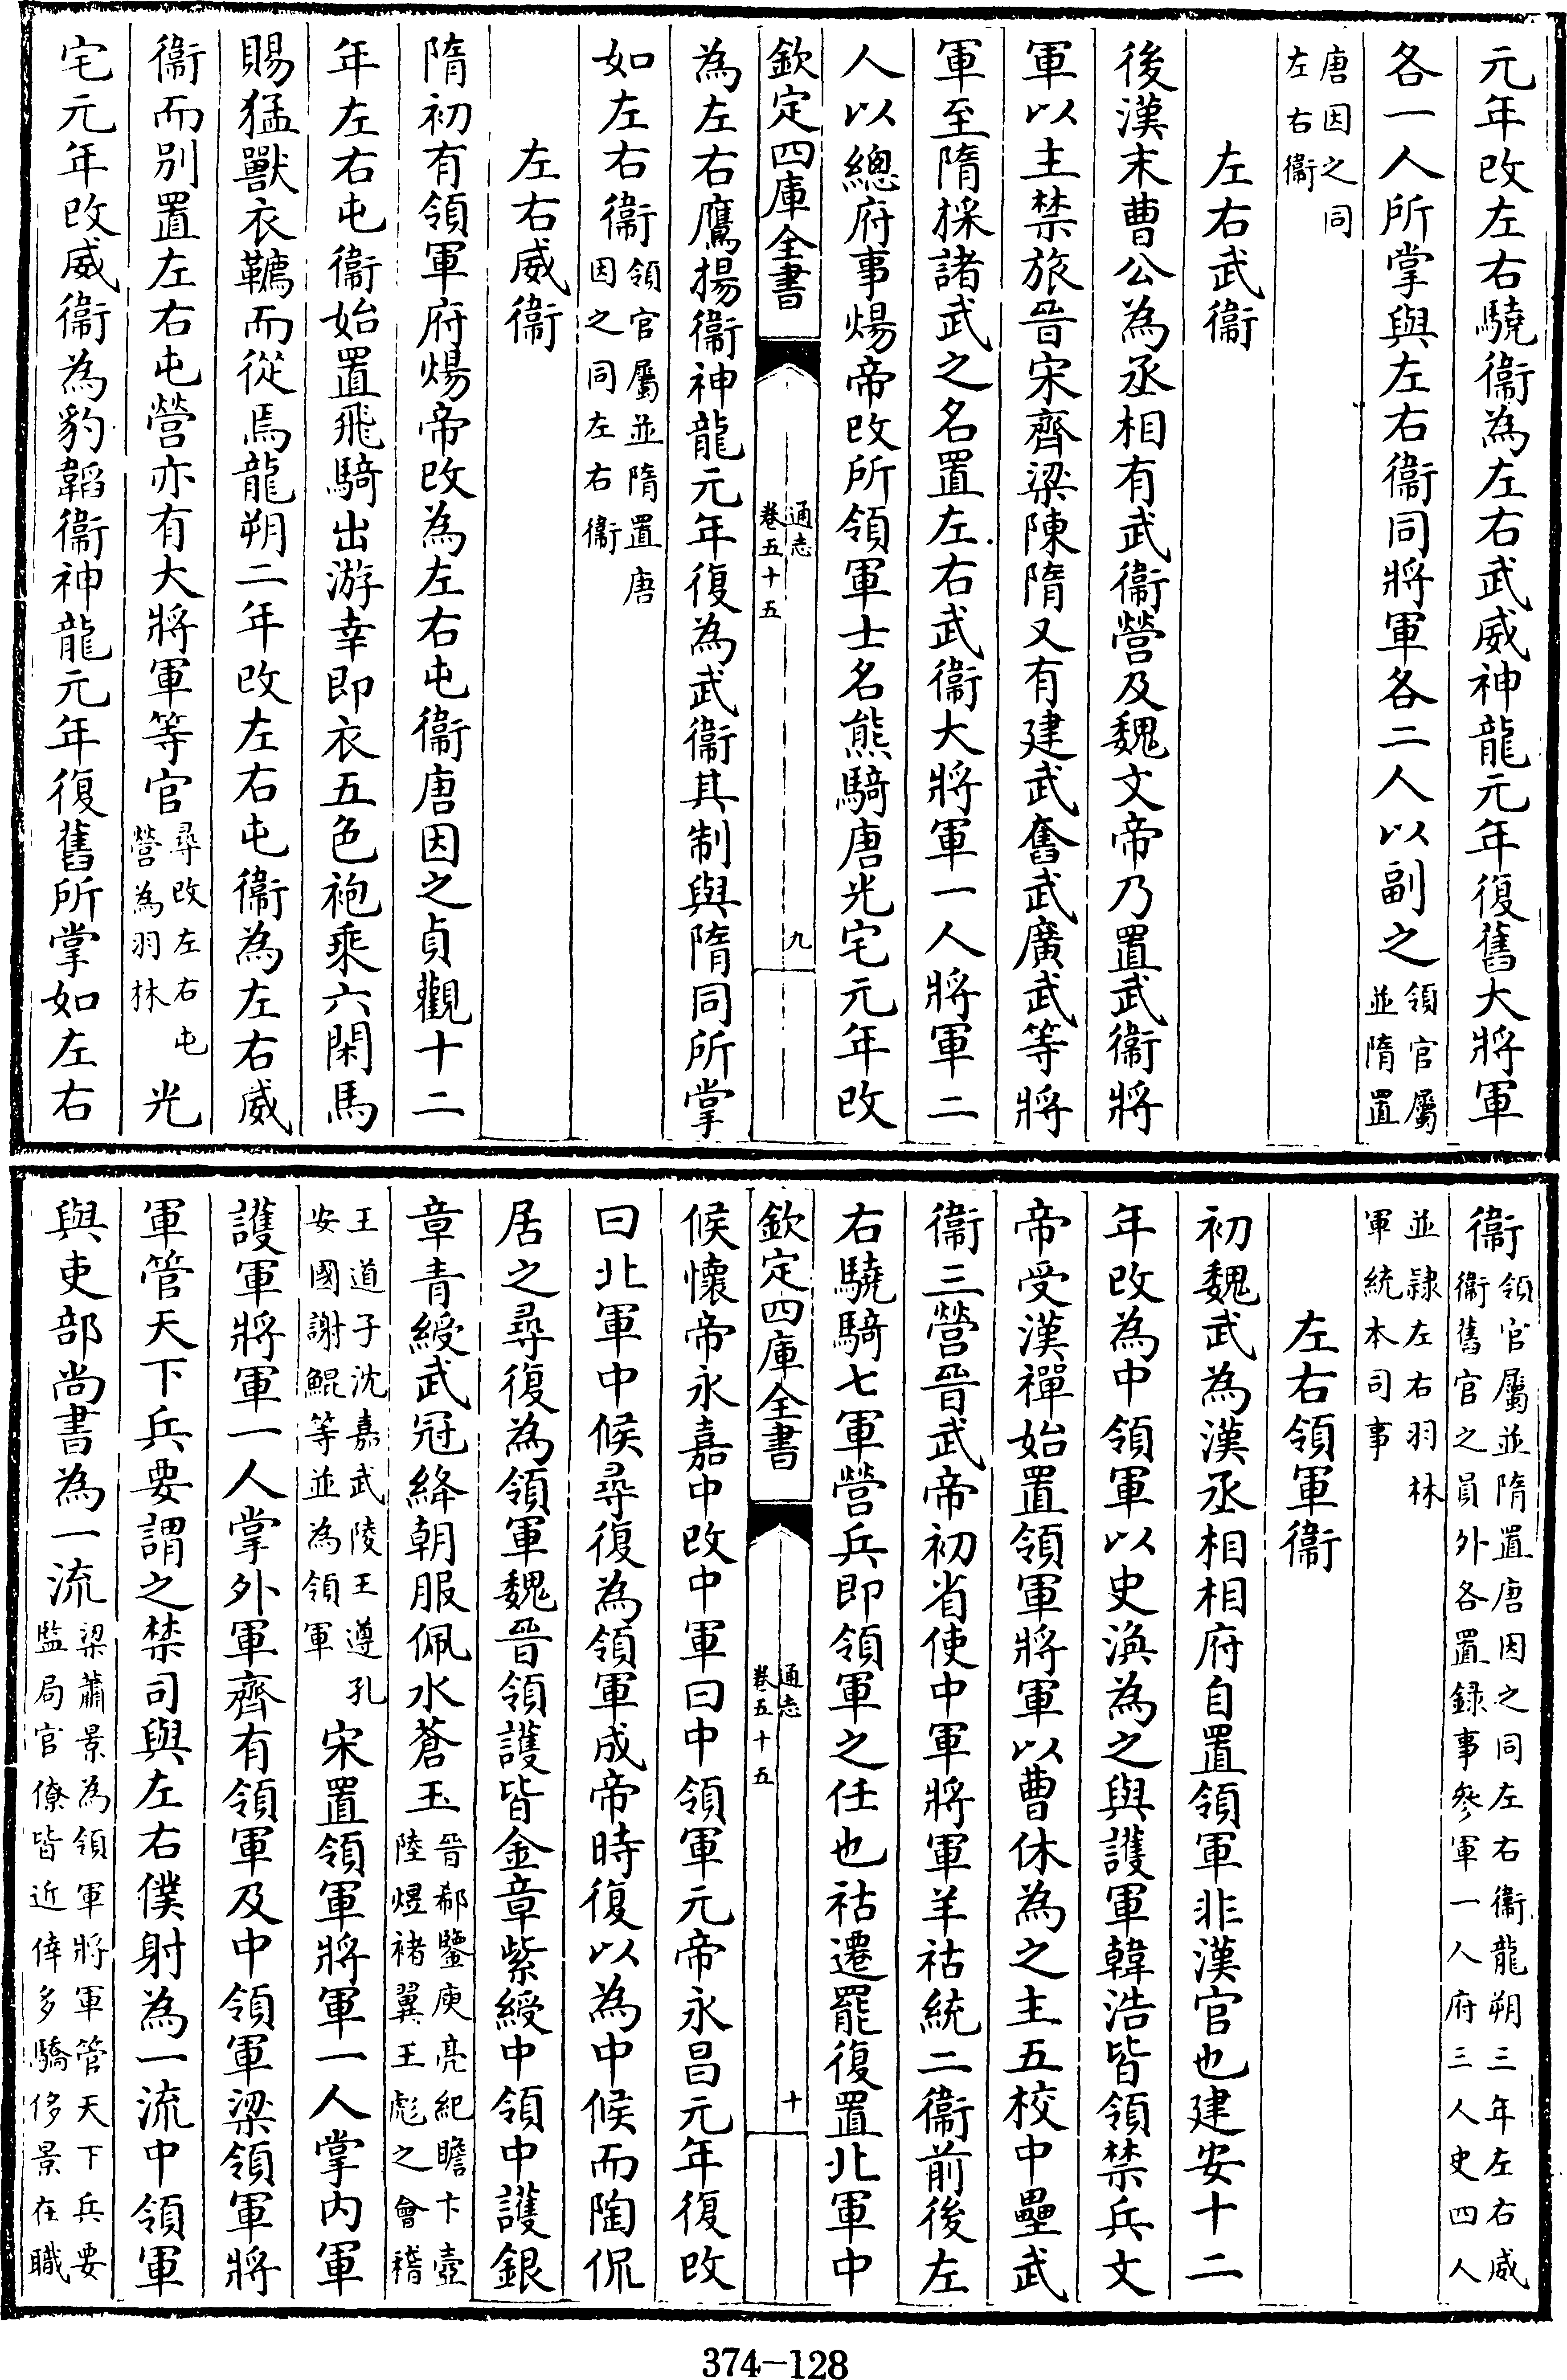 元年改左右驍衞為左右武威神龍元年復舊大將軍
各一人所掌與左右衞同將軍各二人以副之領官屬並隋置
唐因之同左右衞
左右武衞
後漢末曹公為丞相有武衞營及魏文帝乃置武衞將
軍以主禁旅晉宋齊梁陳隋又有建武奮武廣武等將
軍至隋採諸武之名置左右武衞大將軍一人將軍二
人以總府事煬帝改所領軍士名熊騎唐光宅元年改
欽定四庫全書 通志卷五十五 九
為左右鷹揚衞神龍元年復為武衞其制與隋同所掌
如左右衞領官屬並隋置唐因之同左右衞
左右威衞
隋初有領軍府煬帝改為左右屯衞唐因之貞觀十二
年左右屯衞始置飛騎出游幸即衣五色袍乘六閑馬
賜猛獸衣韉而從焉龍朔二年改左右屯衞為左右威
衞而別置左右屯營亦有大將軍等官尋改左右屯營為羽林光
宅元年改威衞為豹韜衞神龍元年復舊所掌如左右
衞領官屬並隋置唐因之同左右衞龍朔三年左右威衞舊官之員外各置録事參軍一人府三人史四人
並隷左右羽林軍統本司事
左右領軍衞
初魏武為漢丞相相府自置領軍非漢官也建安十二
年改為中領軍以史渙為之與護軍韓浩皆領禁兵文
帝受漢禪始置領軍將軍以曹休為之主五校中壘武
衞三營晉武帝初省使中軍將軍羊祜統二衞前後左
右驍騎七軍營兵即領軍之任也祜遷罷復置北軍中
欽定四庫全書 通志卷五十五 十
候懷帝永嘉中改中軍曰中領軍元帝永昌元年復改
曰北軍中候尋復為領軍成帝時復以為中候而陶侃
居之尋復為領軍魏晉領護皆金章紫綬中領中護銀
章青綬武冠絳朝服佩水蒼玉晉郗鑒庾亮紀瞻卞壼陸煜褚翼王彪之會稽
王道子沈嘉武陵王遵孔安國謝鯤等並為領軍宋置領軍將軍一人掌內軍
護軍將軍一人掌外軍齊有領軍及中領軍梁領軍將
軍管天下兵要謂之禁司與左右僕射為一流中領軍
與吏部尚書為一流梁蕭景為領軍將軍管天下兵要監局官僚皆近倖多驕侈景在職
374-128